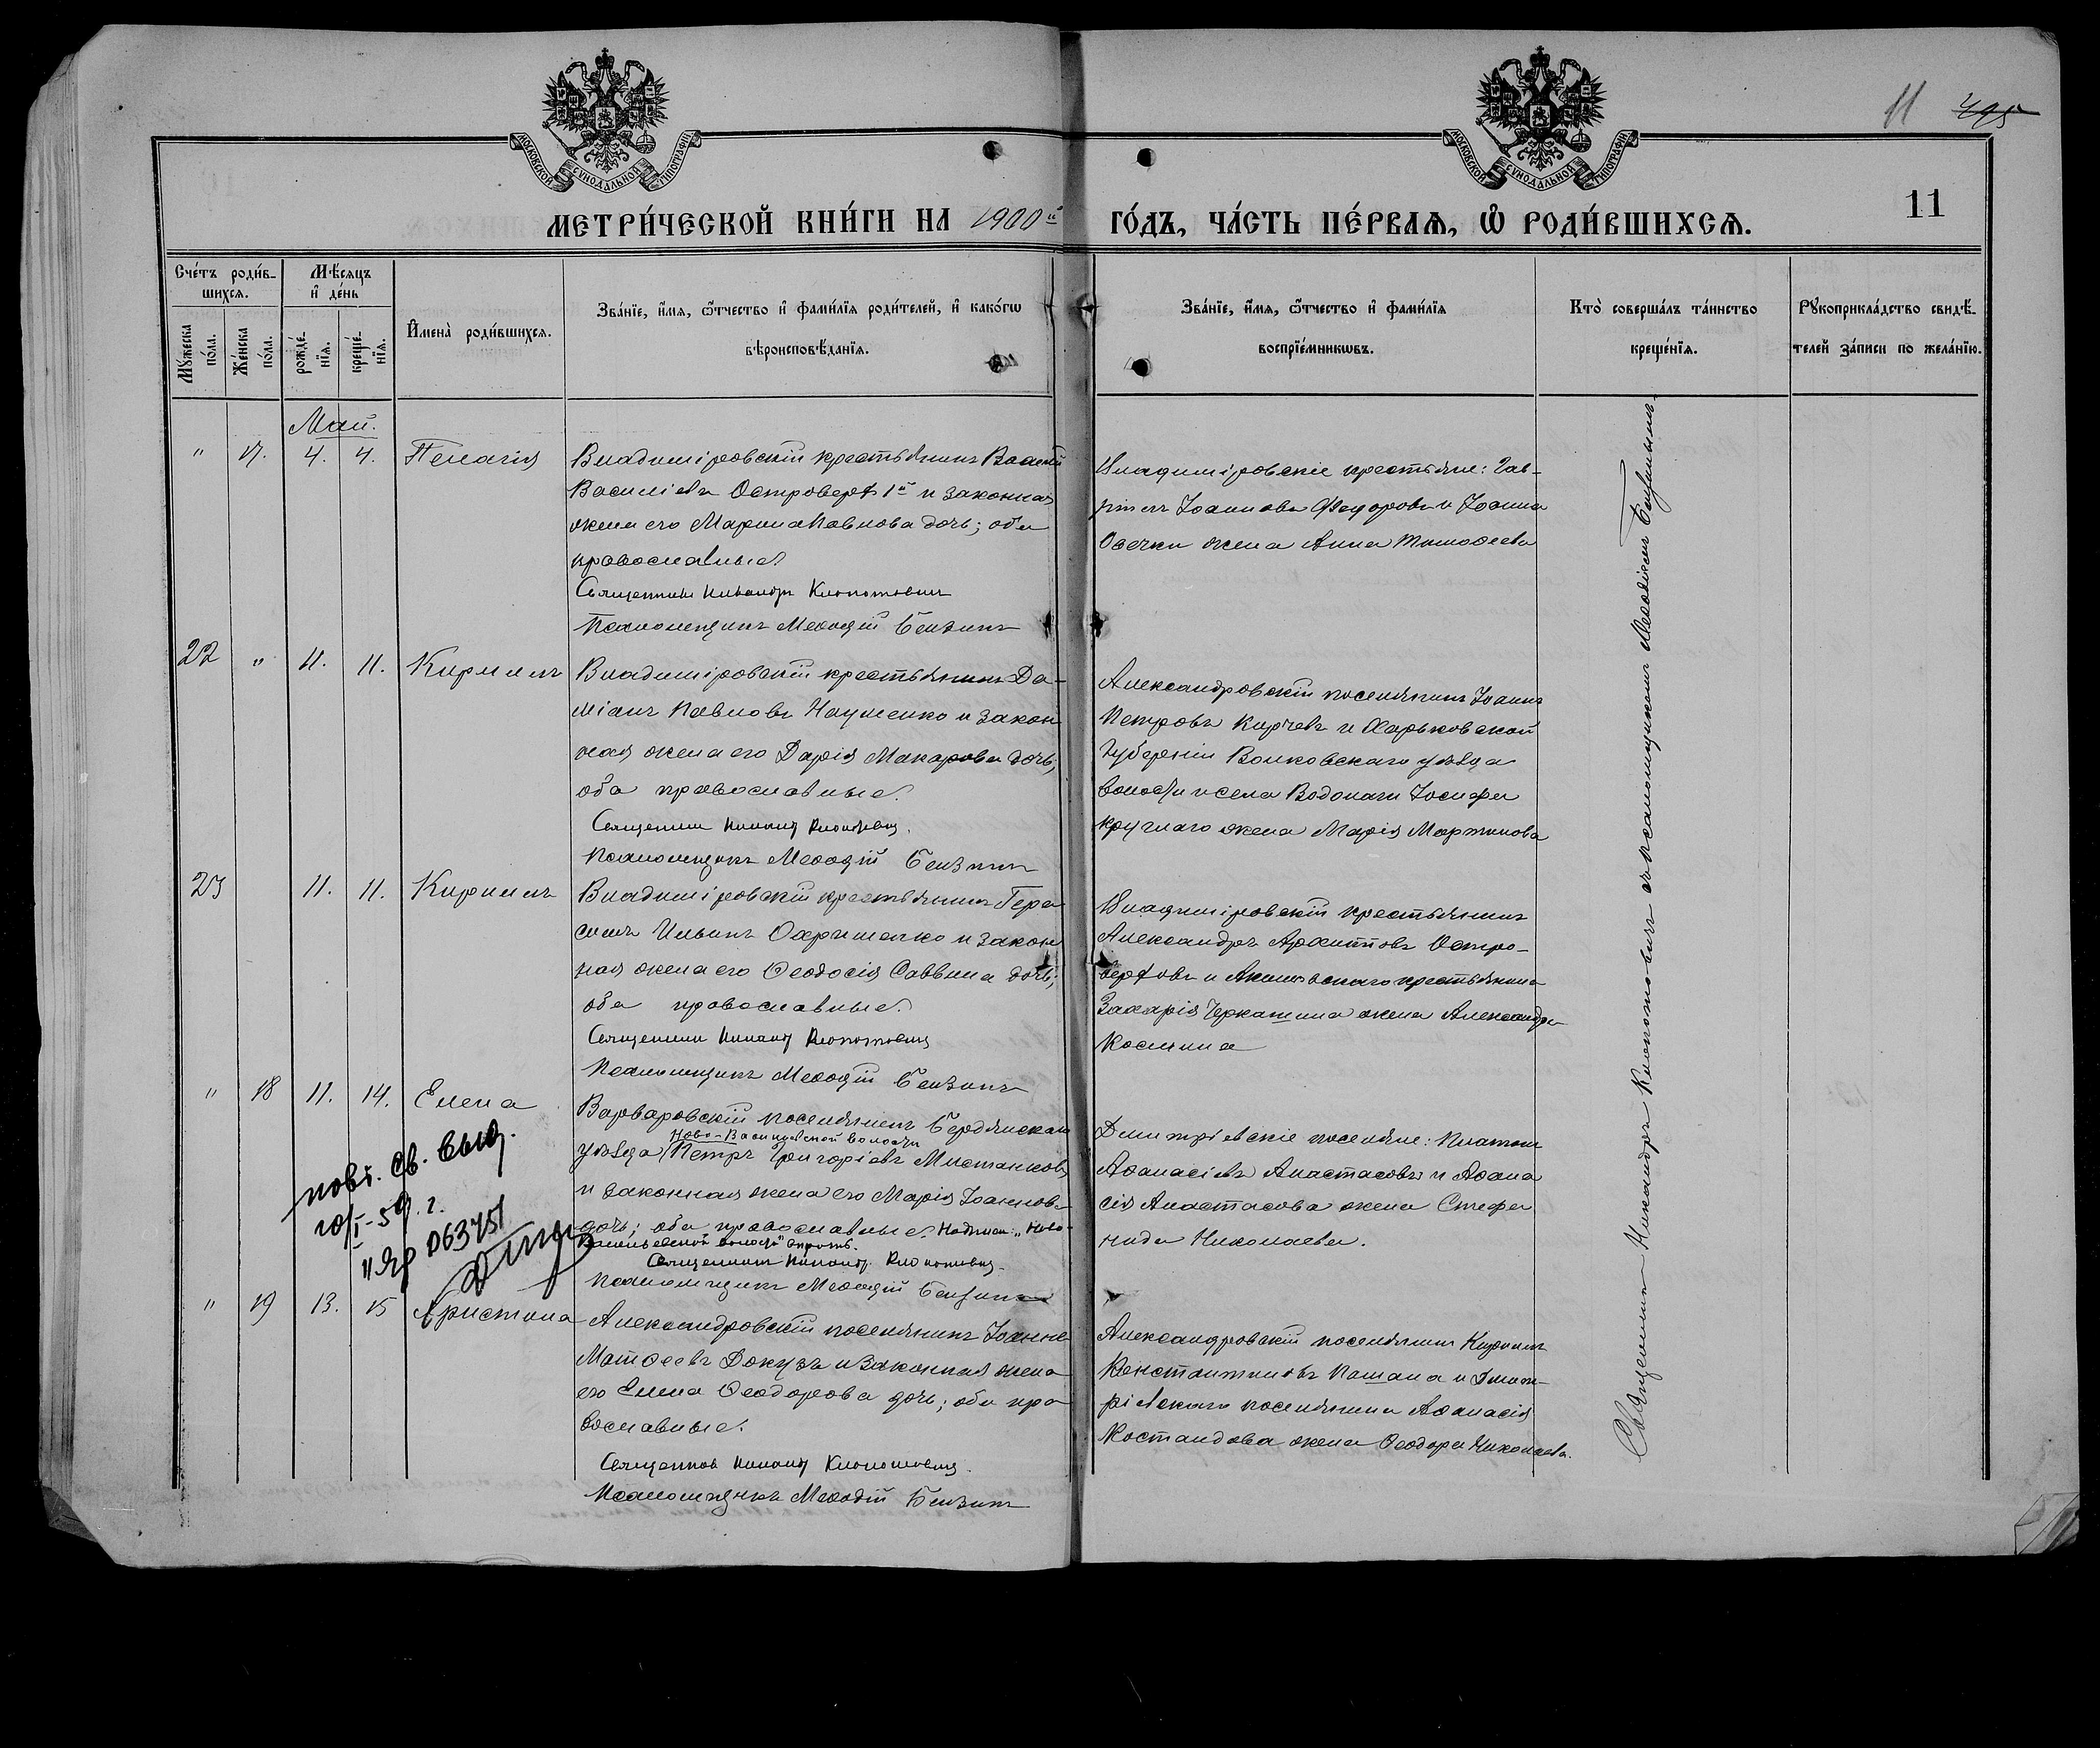 МОСКОВСКОЙ СѴНОДАЛЬНОЙ ТИПОГРАФІИ
МОСКОВСКОЙ СѴНОДАЛЬНОЙ ТИПОГРАФІИ
11
11
МЕТРИ́ЧЕСКОЙ КНИ́ГИ НА 1900й ГО́ДЪ, ЧА́СТЬ ПЕ́РВАѦ, Ѽ РОДИ́ВШИХСѦ.
Сче́тъ роди́в-
шихсѧ.
Мѣ́сѧцъ
и҆ де́нь
Мꙋ́жеска
по́ла.
Же́нска
по́ла.
рожде́-
нїѧ.
креще́-
нїѧ.
И҆мена̀ роди́вшихсѧ.
Зва́нїе, и҆́мѧ, ѻ҆́тчество и҆ фами́лїѧ роди́телей, и҆ како́гѡ
вѣроисповѣ́данїѧ.
Зва́нїе, и҆́мѧ, ѻ҆́тчество и҆ фами́лїѧ
воспрїе́мникѡвъ.
Кто̀ соверша́лъ та́инство
креще́нїѧ.
Рꙋкоприкла́дство свидѣ́-
телей за́писи по жела́нїю.
Май.
" 17. 4. 4. Пелагія
Владиміровскій крестьянинъ Василій
Васильевъ Островерхъ 1й и законная
жена его Марина Павлова дочь; оба
православные.
Священникъ Никандръ Клопотовичъ
Псаломщикъ Меѳодій Бензинъ
Владиміровскіе крестьяне: Гав-
ріилъ Іоанновъ Федоровъ и Іоанна
Овечки жена Анна Тимоѳеева
22 " 11. 11. Кириллъ
Владиміровскій крестьянинъ Да-
міанъ Павловъ Науменко и закон
ная жена его Дарія Макарова дочь;
оба православные.
Священникъ Никандръ Клопотовичъ.
Псаломщикъ Меѳодій Бензинъ
Александровскій поселянинъ Іоаннъ
Петровъ Кирчевъ и Харьковской
губерніи Волковскаго уѣзда
волости и села Водолаги Іосифа
Круглаго жена Марія Мартинова
23 11. 11. Кириллъ
Владиміровскій крестьянинъ Гера
симъ Ильинъ Охрименко и закон
ная жена его Ѳеодосія Саввина дочь;
оба православные.
Священникъ Никандръ Клопотовичъ
Псаломщикъ Меѳодій Бензинъ
Владиміровскій крестьянинъ
Александръ Архипповъ Остро-
верховъ и Акимовскаго крестьянина
Захарія Черкашина жена Александра
Космина
" 18 11. 14. Елена
Варваровскій поселянинъ Бердянскаго
Ново-Васильевской волости
уѣзда Петръ Григоріевъ Мистанковъ
и законная жена его Марія Іоаннова
дочь; оба православные. Надпись: „Ново-
Васильевской волости" вѣрить.
Священникъ Никандръ Клопотовичъ.
Псаломщикъ Меѳодій Бензинъ
Димитріевскіе поселяне: Платонъ
Аѳанасіевъ Анастасовъ и Аѳана
сія Анастасова жена Стефа
нида Николаева.
повт. св. выд.
10/I-59. г.
063751
" 19 13. 15 Христина
Александровскій поселянинъ Іоаннъ
Матѳеевъ Докузъ и законная жена
его Елена Ѳеодорова дочь; оба пра
вославные.
Священникъ Никандръ Клопотовичъ.
Псаломщикъ Меѳодій Бензинъ
Александровскій поселянинъ Кириллъ
Константиновъ Пашала и Димит-
ріевскаго поселянина Аѳанасія
Костандова жена Ѳеодора Николаева.
Священникъ Никандръ Клопотовичъ съ псаломщикомъ Меѳодіемъ Бензинымъ.